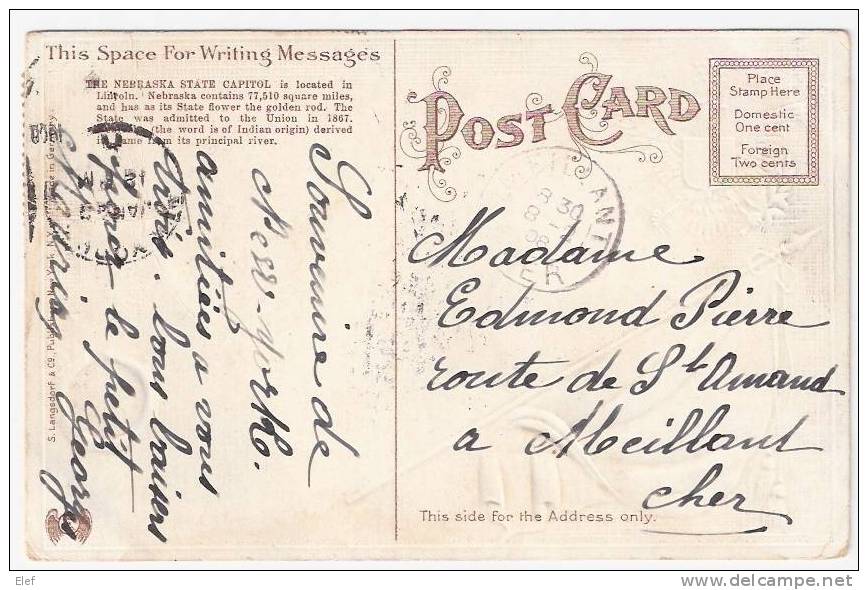 This Space For Writing Messages
THE NEBRASKA STATE CAPITOL is located in
Lincoln. Nebraska contains 77,510 square miles,
and has as its State flower the golden rod. The
State was admitted to the Union in 1867.
(the word is of Indian origin) derived
its name from its principal river.
Souvenire de
New-york.
amitiées a vous
trois. bons baisers
pour le petit
Georges
S. Langsdorf & Co., Publishers, New York.
in Germany.
POST CARD
Place
Stamp Here
Domestic
One cent
Foreign
Two cents
8 30
CHER
Madame
Edmond Pierre
route de St Amand
a Meillant
cher
This side for the Address only.
Elef
www.delcampe.net